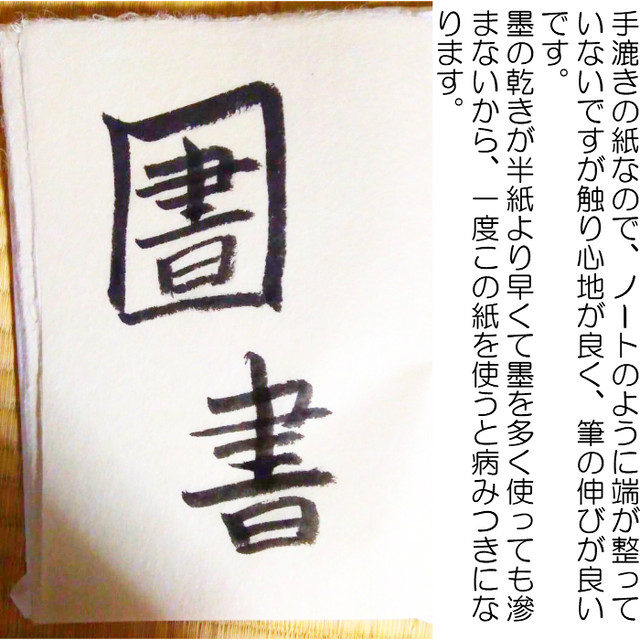 手漉きの紙なので、ノートのように端が整って
いないですが触り心地が良く、筆の伸びが良い
です。
墨の乾きが半紙より早くて墨を多く使っても滲
まないから、一度この紙を使うと病みつきにな
ります。
圕
書